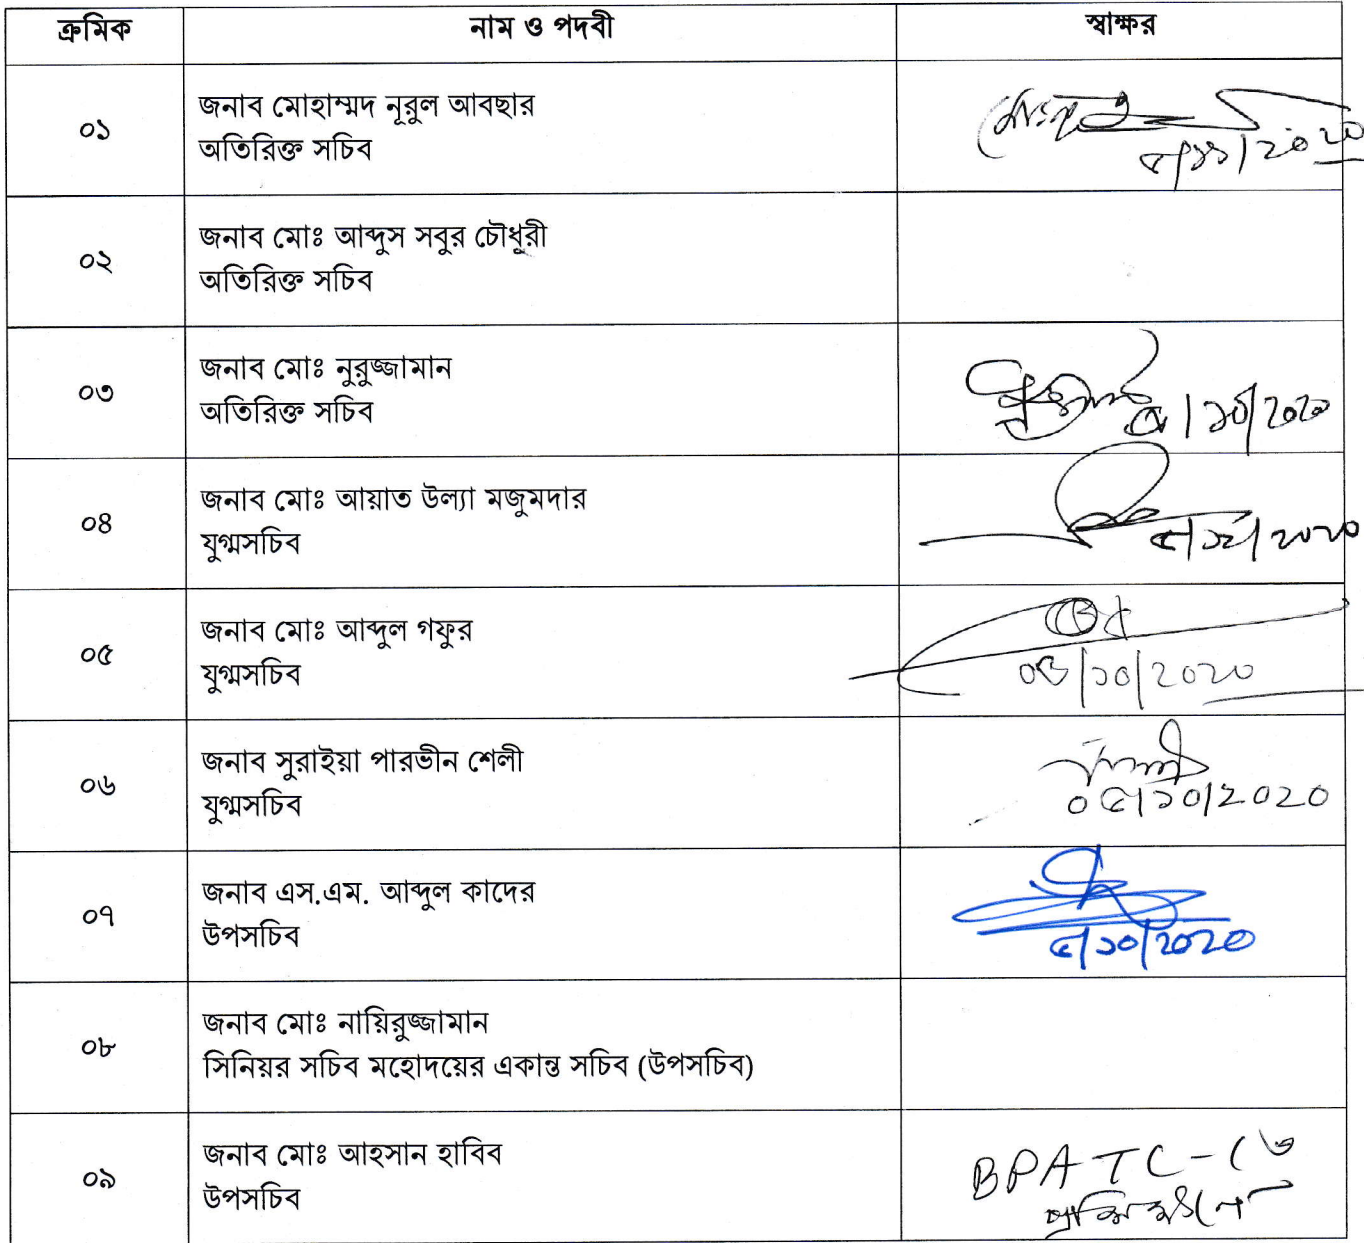 ক্রমিক নাম ও পদবী স্বাক্ষর
০১ জনাব মোহাম্মদ নূরুল আবছার
অতিরিক্ত সচিব
০২ জনাব মোঃ আব্দুস সবুর চৌধুরী
অতিরিক্ত সচিব
০৩ জনাব মোঃ নুরুজ্জামান
অতিরিক্ত সচিব
৫/১০/২০২০
০৪ জনাব মোঃ আয়াত উল্যা মজুমদার
যুগ্মসচিব
০৫ জনাব মোঃ আব্দুল গফুর
যুগ্মসচিব
০৫/১০/২০২০
০৬ জনাব সুরাইয়া পারভীন শেলী
যুগ্মসচিব
০৫/১০/২০২০
০৭ জনাব এস.এম. আব্দুল কাদের
উপসচিব
৫/১০/২০২০
০৮ জনাব মোঃ নায়িরুজ্জামান
সিনিয়র সচিব মহোদয়ের একান্ত সচিব (উপসচিব)
০৯ জনাব মোঃ আহসান হাবিব
উপসচিব
BPATC-তে